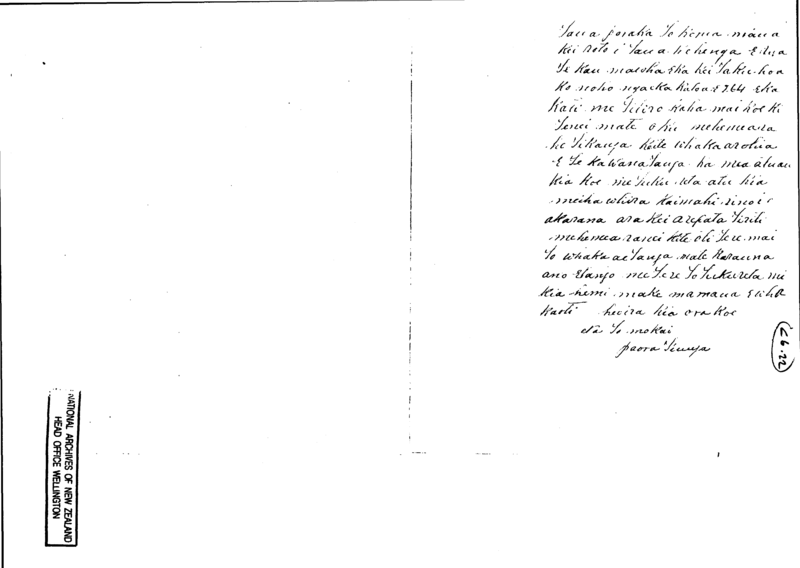 taua poraka to hema maua
kei roto i taua hehenga Etua
te kau maeoha Eha kei taku hoa
ko noho ngaeka 2764 Eka
Kati me titiro kaha mai koe ki
tenei mate oku mehemeara
he tikanga keite whaka arohia
E te Kawanatanga ka mea atuau
kia koe me tuku uta atu kia
meiha whira Kaimahi
akarana ara kei arepata tiriti
mehemea ranei kite oti tere mai
to whaka ae tanga mate Karauna
ano Etango me tere to tuku uta mi
kia hemi make mamana
kaati heoira kia ora koe
na to mokai
paora tiunga
26.22
NATIONAL ARCHIVES OF NEW ZEALAND
HEAD OFFICE WELLINGTON